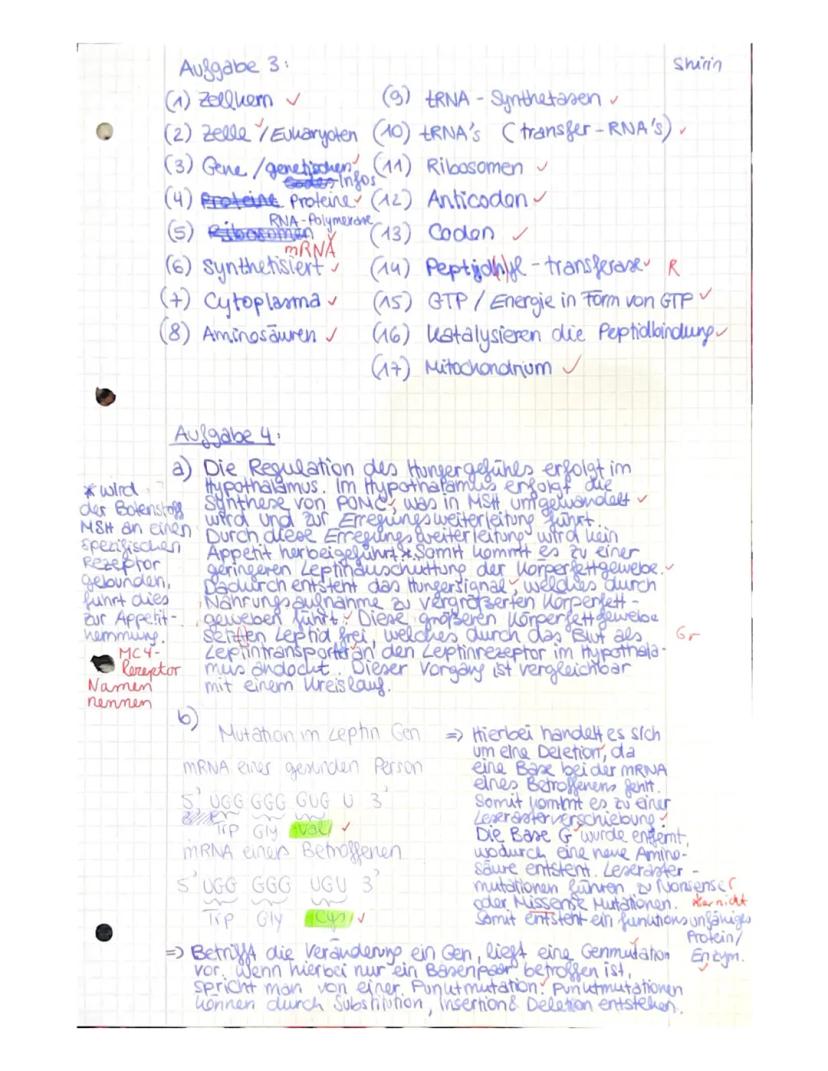 Aufgabe 3:
Shirin
(1) Zellkern ✓
(2) Zelle ✓/Eukaryoten
(3) Gene /genetischen ✓
Infos
(4) Proteine Proteine ✓
RNA-Polymerase
(5) Ribosomen
mRNA
(6) Synthetisiert ✓
(7) Cytoplasma ✓
(8) Aminosäuren ✓
(9) tRNA - Synthetasen ✓
(10) tRNA's (transfer-RNA's) ✓
(11) Ribosomen ✓
(12) Anticodon ✓
(13) Codon ✓
(14) Peptidhyl - transferase ✓ R
(15) GTP / Energie in Form von GTP ✓
(16) Katalysieren die Peptidbindung ✓
(17) Mitochondrium ✓
Aufgabe 4:
a) Die Regulation des Hungergefühles erfolgt im
Hypothalamus. Im Hypothalamus erfolgt die
Synthese von POMC, was in MSH umgewandelt ✓
wird und zur Erregungsweiterleitung führt.
Durch diese Erregungsweiterleitung wird kein
Appetit herbeigeführt.* Somit kommt es zu einer
geringeren Leptinausschüttung der Körperfettgewebe. ✓
Dadurch entsteht das Hungersignal, welches durch
Nahrungsaufnahme zu vergrößerten Körperfett-
geweben führt. ✓ Diese größeren Körperfettgewebe
setzten Leptid frei, welches durch das Blut als Gr
Leptintransporter an den Leptinrezeptor im Hypothala-
mus andockt. Dieser Vorgang ist vergleichbar
mit einem Kreislauf.
* wird
der Botenstoff
MSH an einen
spezifischen
Rezeptor
gebunden,
führt dies
zur Appetit-
hemmung.
MC4-
Rezeptor
Namen
nennen
b)
Mutation im Leptin Gen
mRNA einer gesunden Person
5' UGG GGG GUG U 3'
Trp Gly Val ✓
mRNA einer Betroffenen
5' UGG GGG UGU 3'
Trp Gly Cys ✓
=> Hierbei handelt es sich
um eine Deletion, da
eine Base bei der mRNA
eines Betroffenen fehlt.
Somit kommt es zu einer
Leserasterverschiebung. ✓
Die Base G wurde entfernt,
wodurch eine neue Amino-
säure entsteht. Leseraster-
mutationen führen zu Nonsense
oder Missense Mutationen. nicht
Somit entsteht ein funktionsunfähiges
Protein/
Enzym. ✓
=> Betrifft die Veränderung ein Gen, liegt eine Genmutation
vor. Wenn hierbei nur ein Basenpaar betroffen ist,
spricht man von einer Punktmutation. Punktmutationen
können durch Substitution, Insertion & Deletion entstehen.